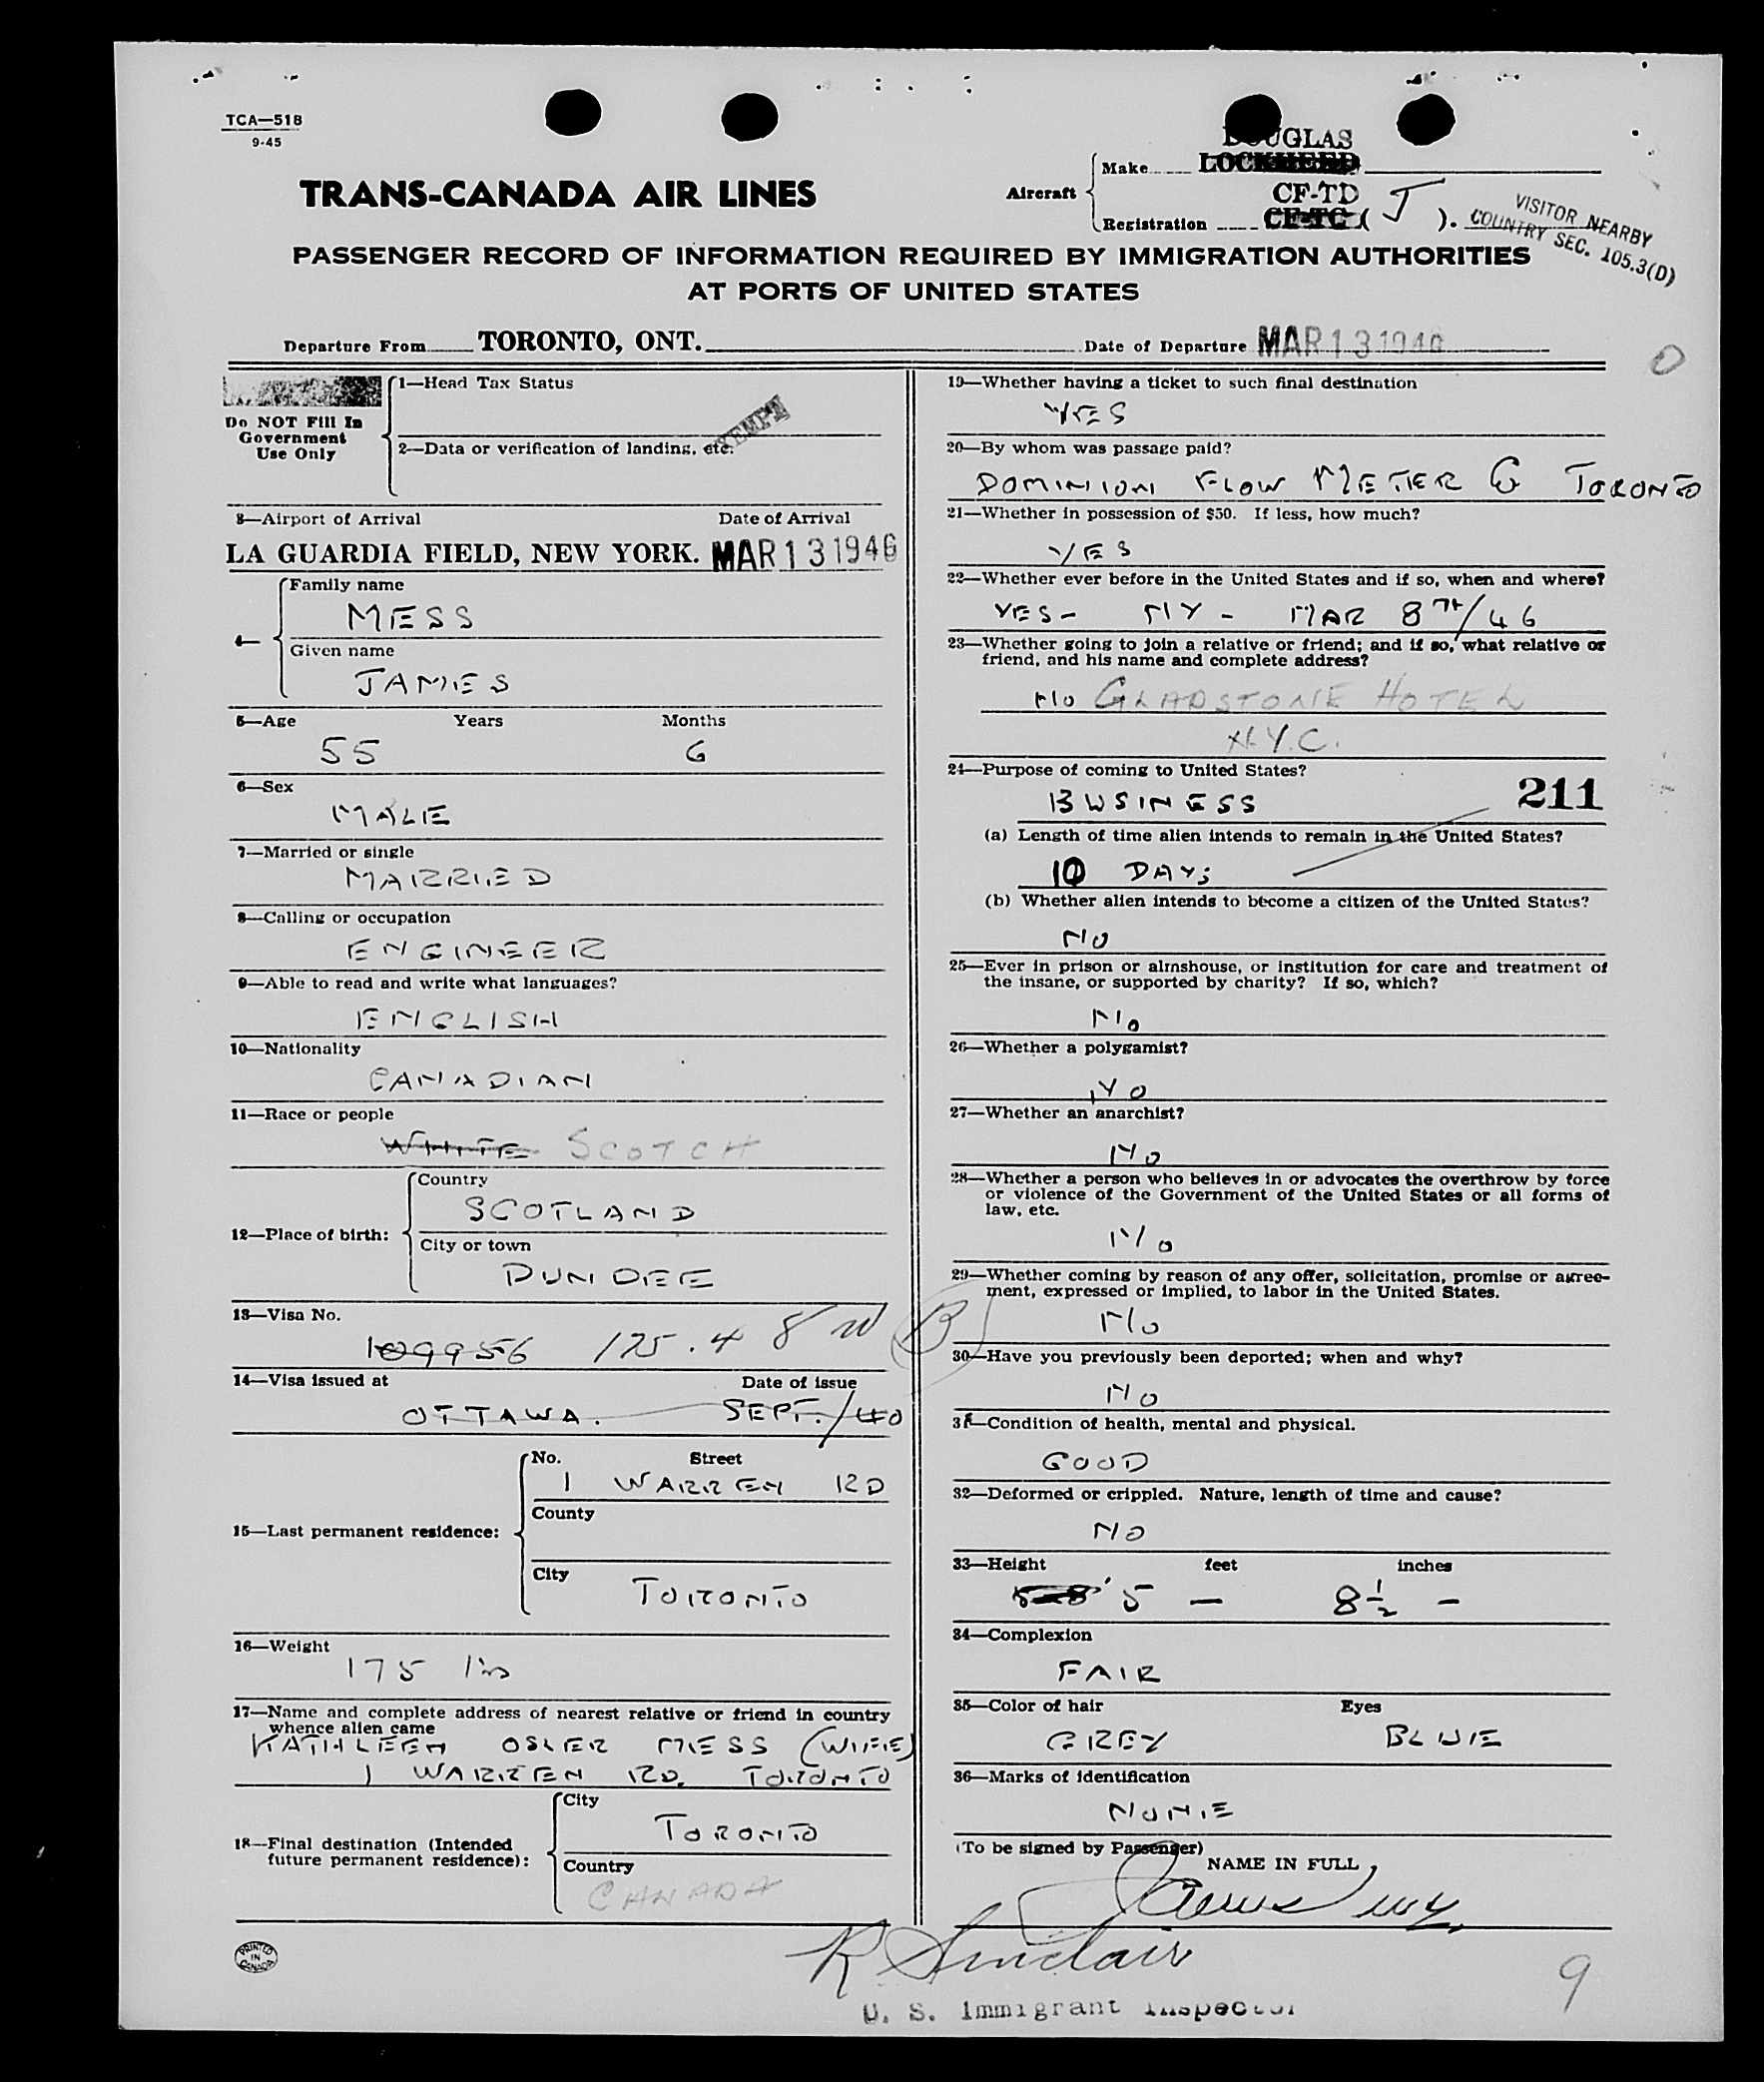 TCA—518
9-45
DOUGLAS
LOCKHEED
TRANS-CANADA AIR LINES
Aircraft
Make
CF-TD
Registration CF-TC ( J ).
VISITOR NEARBY
COUNTRY SEC. 105.3(D)
PASSENGER RECORD OF INFORMATION REQUIRED BY IMMIGRATION AUTHORITIES
AT PORTS OF UNITED STATES
Departure From TORONTO, ONT. Date of Departure MAR 13 1946
0
Do NOT Fill In
Government
Use Only
1—Head Tax Status
EXEMPT
2—Data or verification of landing, etc.
3—Airport of Arrival Date of Arrival
LA GUARDIA FIELD, NEW YORK. MAR 13 1946
4—
Family name
MESS
Given name
JAMES
5—Age Years Months
55 6
6—Sex
MALE
7—Married or single
MARRIED
8—Calling or occupation
ENGINEER
9—Able to read and write what languages?
ENGLISH
10—Nationality
CANADIAN
11—Race or people
WHITE SCOTCH
12—Place of birth:
Country
SCOTLAND
City or town
DUNDEE
13—Visa No.
109956 175.4 8 B
14—Visa issued at Date of issue
OTTAWA. SEPT./40
15—Last permanent residence:
No. Street
1 WARREN RD
County
City
TORONTO
16—Weight
175 lbs
17—Name and complete address of nearest relative or friend in country
whence alien came
KATHLEEN OSLER MESS (WIFE)
1 WARREN RD. TORONTO
18—Final destination (Intended
future permanent residence):
City
TORONTO
Country
CANADA
PRINTED
IN
CANADA
19—Whether having a ticket to such final destination
YES
20—By whom was passage paid?
DOMINION FLOW METER Co TORONTO
21—Whether in possession of $50. If less, how much?
YES
22—Whether ever before in the United States and if so, when and where?
YES - NY - MAR 8TH/46
23—Whether going to join a relative or friend; and if so, what relative or
friend, and his name and complete address?
NO GLADSTONE HOTEL
N.Y.C.
24—Purpose of coming to United States?
BUSINESS
211
(a) Length of time alien intends to remain in the United States?
10 DAYS
(b) Whether alien intends to become a citizen of the United States?
NO
25—Ever in prison or almshouse, or institution for care and treatment of
the insane, or supported by charity? If so, which?
NO
26—Whether a polygamist?
NO
27—Whether an anarchist?
NO
28—Whether a person who believes in or advocates the overthrow by force
or violence of the Government of the United States or all forms of
law, etc.
NO
29—Whether coming by reason of any offer, solicitation, promise or agree-
ment, expressed or implied, to labor in the United States.
NO
30—Have you previously been deported; when and why?
NO
31—Condition of health, mental and physical.
GOOD
32—Deformed or crippled. Nature, length of time and cause?
NO
33—Height feet inches
5 — 8½ —
34—Complexion
FAIR
35—Color of hair Eyes
GREY BLUE
36—Marks of identification
NONE
(To be signed by Passenger)
NAME IN FULL
James Mess
R Sinclair
U. S. Immigrant Inspector
9